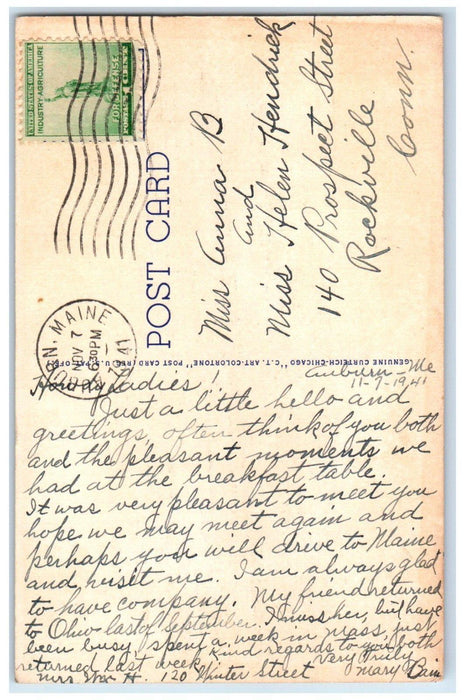 UNITED STATES OF AMERICA
INDUSTRY·AGRICULTURE
FOR DEFENSE
POSTAGE 1 CENT
AUBURN, MAINE
NOV 7
630PM
1941
POST CARD
GENUINE CURTEICH-CHICAGO "C.T. ART-COLORTONE" POST CARD (REG. U.S. PAT. OFF.)
Miss Anna B
and
Miss Helen Hendrick
140 Prospect Street
Rockville
Conn.
Auburn - Me
11-7-1941
Howdy Ladies!
Just a little hello and
greetings, often think of you both
and the pleasant moments we
had at the breakfast table.
It was very pleasant to meet you
hope we may meet again and
perhaps you will drive to Maine
and visit me. I am always glad
to have company. My friend returned
to Ohio last of September. I miss her, but have
been busy, spent a week in Mass, just
returned last week. Kind regards to you both
Very Truly
Mrs. Wm H. 120 Winter Street Mary Bain